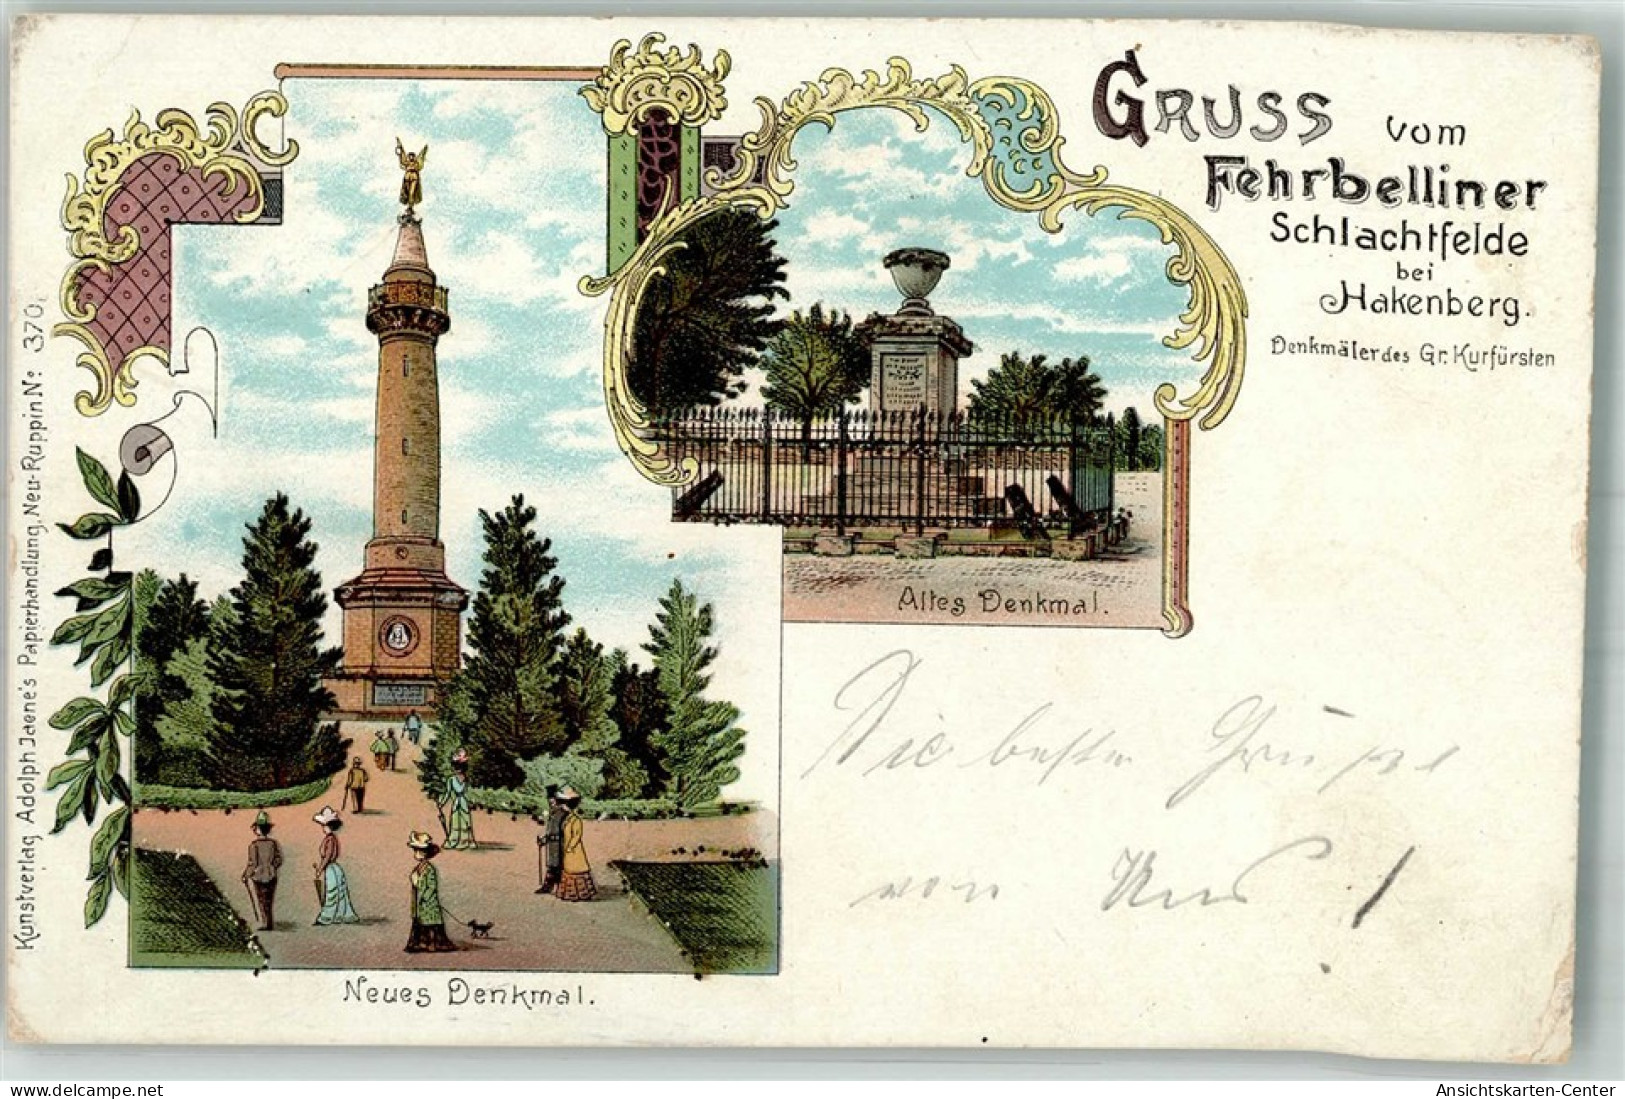 GRUSS vom
Fehrbelliner
Schlachtfelde
bei
Hakenberg.
Denkmäler des Gr. Kurfürsten
Altes Denkmal.
Neues Denkmal.
Kunstverlag Adolph Jaene's Papierhandlung, Neu-Ruppin No. 370.
Die besten Grüße
von Uns !
delcampe.net
Ansichtskarten-Center